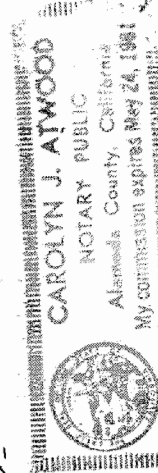 CAROLYN J. ATWOOD
NOTARY PUBLIC
Alameda County, California
My commission expires May 24, 1981